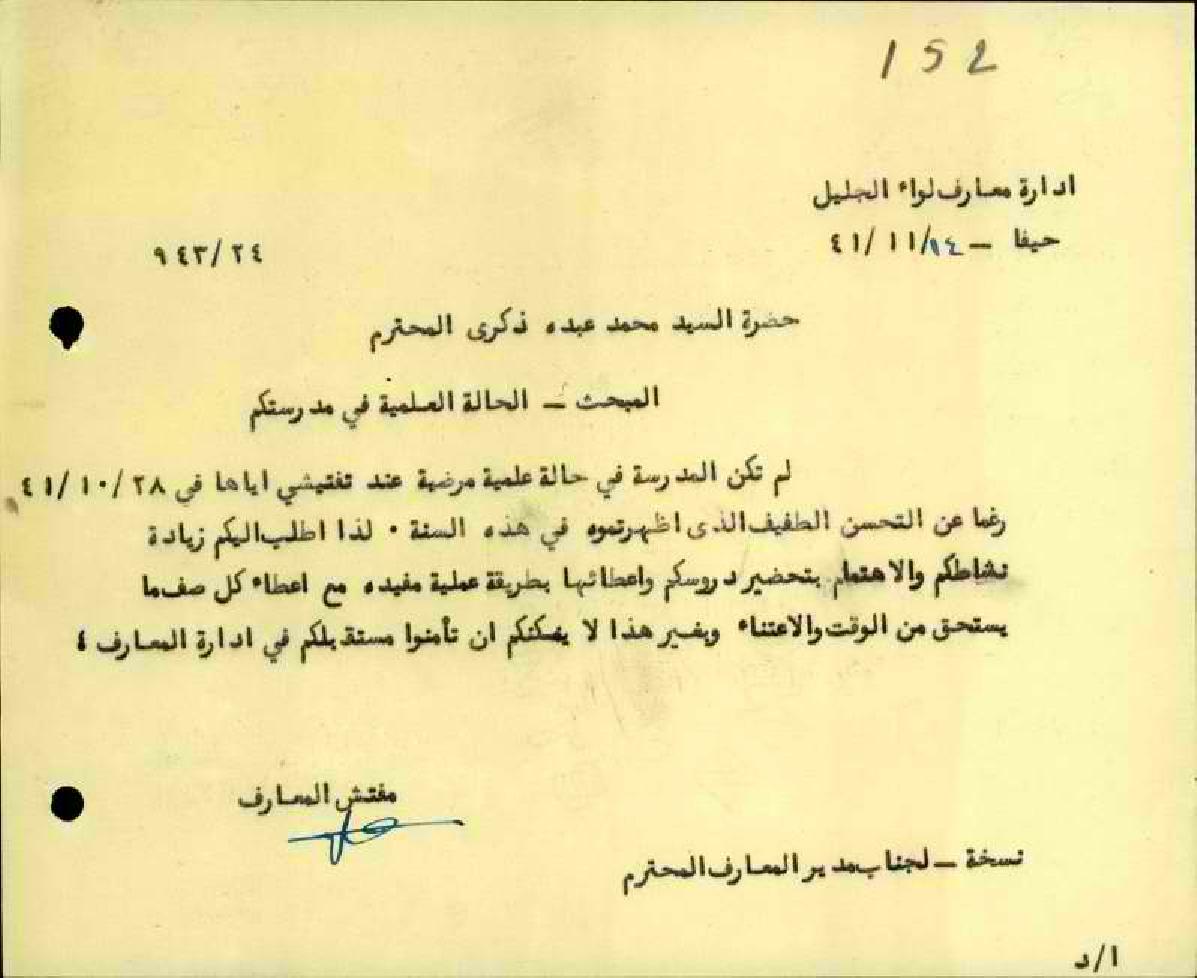 152
ادارة معارف لواء الجليل
حيفا – ١٤/ ١١/ ٤١
٩٤٣/٢٤
حضرة السيد محمد عبده ذكرى المحترم
المبحث – الحالة العلمية في مدرستكم
لم تكن المدرسة في حالة علمية مرضية عند تفتيشي اياها في ٢٨/ ١٠/ ٤١
رغما عن التحسن الطفيف الذى اظهرتموه في هذه السنة ٠ لذا اطلب اليكم زيادة
نشاطكم والاهتمام بتحضير دروسكم واعطائها بطريقة عملية مفيده مع اعطاء كل صف ما
يستحق من الوقت والاعتناء وبغير هذا لا يمكنكم ان تأمنوا مستقبلكم في ادارة المعارف ٤
مفتش المعارف
نسخة – لجناب مدير المعارف المحترم
ا/د